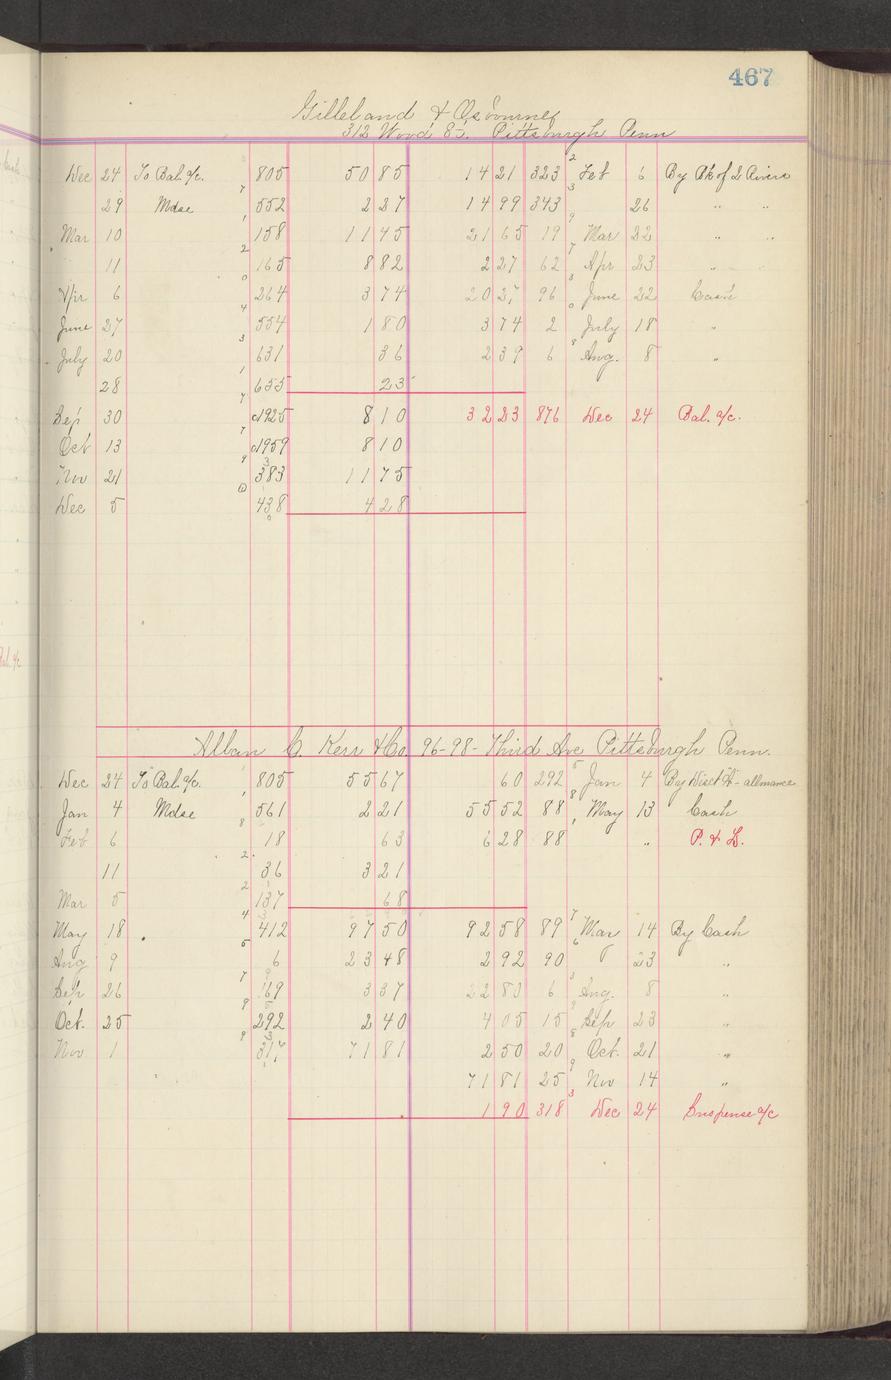 467
Gilleland & Osbourne
312 Wood St. Pittsburgh Penn
Dec 24 To Bal. a/c. 805 50 85 14 21 323 Feb 6 By Bk of 2 Rivers
29 Mdse 552 2 27 14 99 343 26 " "
Mar 10 158 11 45 21 65 19 Mar 22 " "
11 165 8 82 2 27 62 Apr 23 " "
Apr 6 264 3 74 20 27 96 June 22 Cash
June 27 554 1 80 3 74 2 July 18 "
July 20 631 36 2 39 6 Aug. 8 "
28 655 23
Sep 30 1925 8 10 32 23 876 Dec 24 Bal. a/c.
Oct 13 1959 8 10
Nov 21 383 11 75
Dec 5 438 4 28
Bal. a/c
Alban C. Kerr & Co. 96-98- Third Ave Pittsburgh Penn.
Dec 24 To Bal. a/c. 805 55 67 60 292 Jan 4 By allowance
Jan 4 Mdse 561 2 21 55 52 88 May 13 Cash
Feb 6 18 63 6 28 88 " P. & L.
11 36 3 21
Mar 5 137 68
May 18 412 97 50 92 58 89 Mar 14 By Cash
Aug 9 6 23 48 2 92 90 23 "
Sep 26 169 3 37 22 83 6 Aug. 8 "
Oct. 25 292 2 40 4 05 15 Sep 23 "
Nov 1 317 71 81 2 50 20 Oct. 21 "
71 81 25 Nov 14 "
1 90 318 Dec 24 Suspense a/c